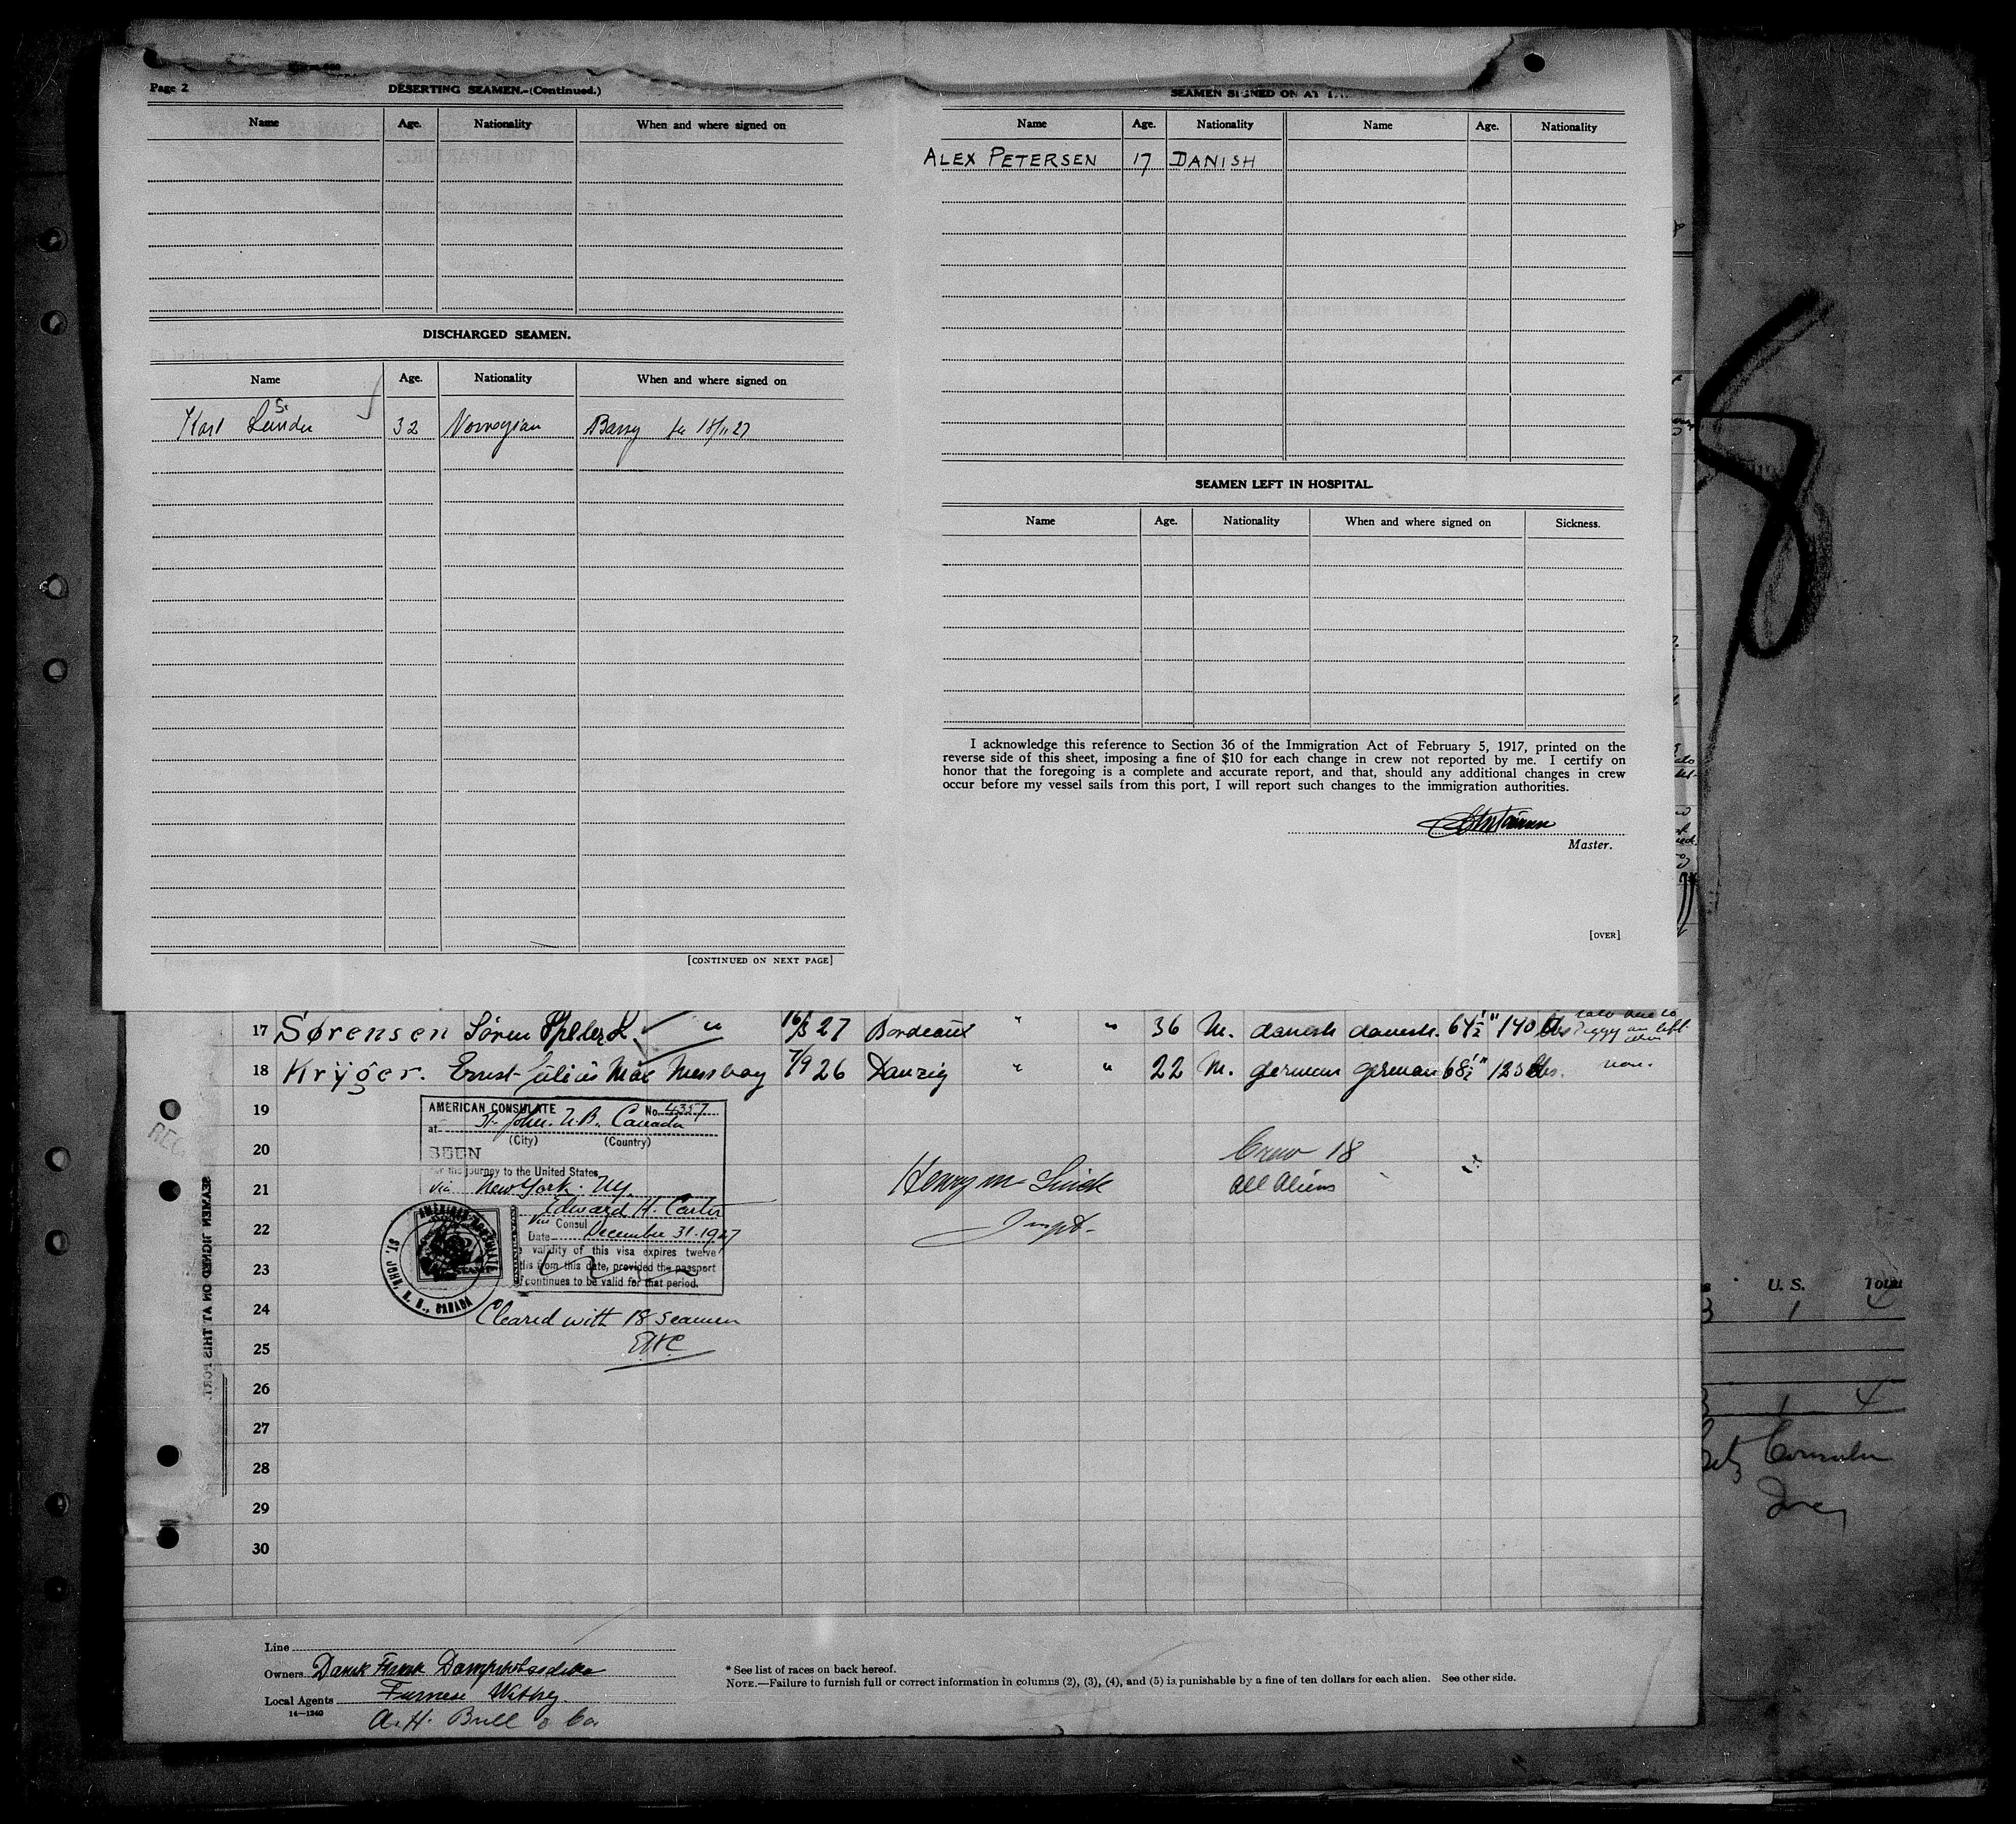 Page 2
DESERTING SEAMEN.-(Continued.)
Name Age. Nationality When and where signed on
DISCHARGED SEAMEN.
Name Age. Nationality When and where signed on
Karl 32 Norwegian Barry 18/11 27
[CONTINUED ON NEXT PAGE]
SEAMEN SIGNED ON AT
Name Age. Nationality Name Age. Nationality
ALEX PETERSEN 17 DANISH
SEAMEN LEFT IN HOSPITAL
Name Age. Nationality When and where signed on Sickness.
I acknowledge this reference to Section 36 of the Immigration Act of February 5, 1917, printed on the
reverse side of this sheet, imposing a fine of $10 for each change in crew not reported by me. I certify on
honor that the foregoing is a complete and accurate report, and that, should any additional changes in crew
occur before my vessel sails from this port, I will report such changes to the immigration authorities.
Master.
[OVER]
17 Sørensen Sören " 16/3 27 Bordeaux " " 36 M. danish danish. 64½" 140 lbs
18 Krÿger. Ernst Julius Max Messboy 7/9 26 Danzig " " 22 M. german german 68½" 123 lbs. non.
19
20
21
22
23
24
25
26
27
28
29
30
AMERICAN CONSULATE No. 4357
at St. John. N.B., Canada
(City) (Country)
SEEN
For the journey to the United States
via New York. N.Y.
Edward H. Carter
Vice Consul
Date December 31-1927
validity of this visa expires twelve
from this date, provided the passport
continues to be valid for that period.
AMERICAN CONSULATE
ST. JOHN, N. B., CANADA
Cleared with 18 seamen
EHC
Crew 18
All Aliens
Inspt.
Line
Owners Dansk Fransk
Local Agents Furness Withy
14-1240
A. H. Bull & Co.
* See list of races on back hereof.
NOTE.—Failure to furnish full or correct information in columns (2), (3), (4), and (5) is punishable by a fine of ten dollars for each alien. See other side.
SEAMEN SIGNED ON AT THIS PORT.
8
U. S. Total
3 1 4
1 4